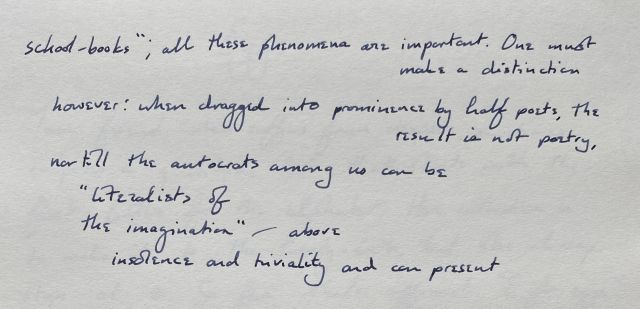 school-books"; all these phenomena are important. One must
make a distinction
however: when dragged into prominence by half poets, the
result is not poetry,
nor till the autocrats among us can be
"literalists of
the imagination" — above
insolence and triviality and can present